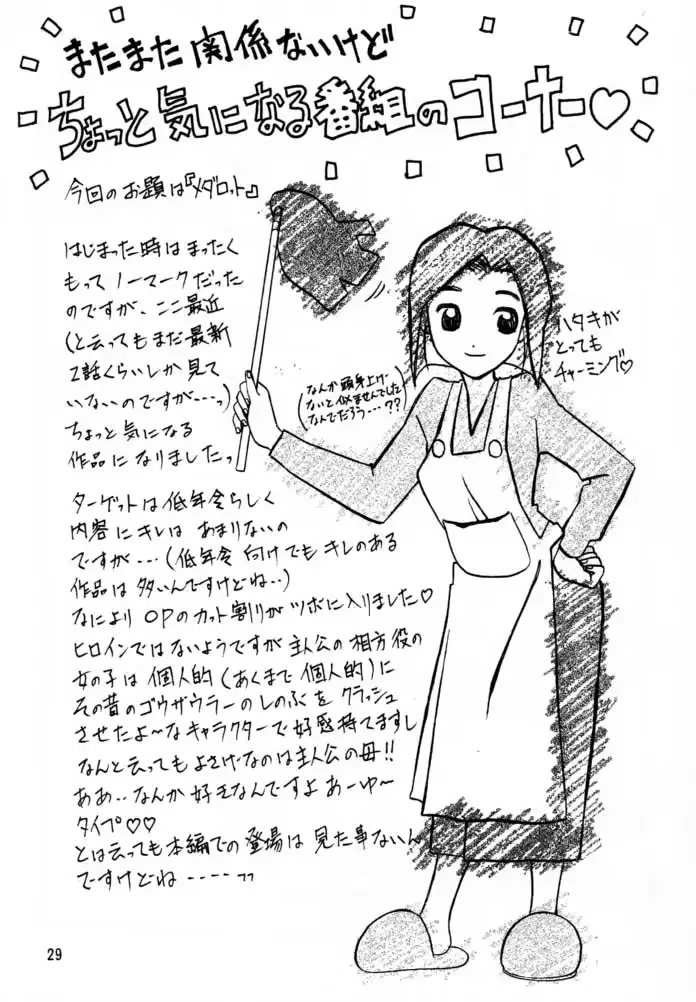 またまた関係ないけど
ちょっと気になる番組のコーナー♡
今回のお題は『メダロット』
はじまった時はまったく
もってノーマークだった
のですが、ここ最近
(と云ってもまだ最新
2話くらいしか見て
いないのですが---っ)
ちょっと気になる
作品になりましたっ
ハタキが
とっても
チャーミング♡
(なんか頭身上げ
ないと似ませんでした
なんでだろう・・・??)
ターゲットは低年令らしく
内容にキレは あまりないの
ですが・・・(低年令向けでもキレのある
作品は多いんですけどね・・)
なにより OPのカット割りが ツボに入りました♡
ヒロインではないようですが 主人公の相方役の
女の子は個人的(あくまで個人的)に
その昔のゴウザウラーのしのぶを クラッシュ
させたよ〜なキャラクターで好感持てますし
なんと云ってもよさげ-なのは主人公の母!!
ああ・・なんか好きなんですよ あーゆ〜
タイプ♡♡
とは云っても本編での登場は見た事ないん
ですけどね----っっ
29